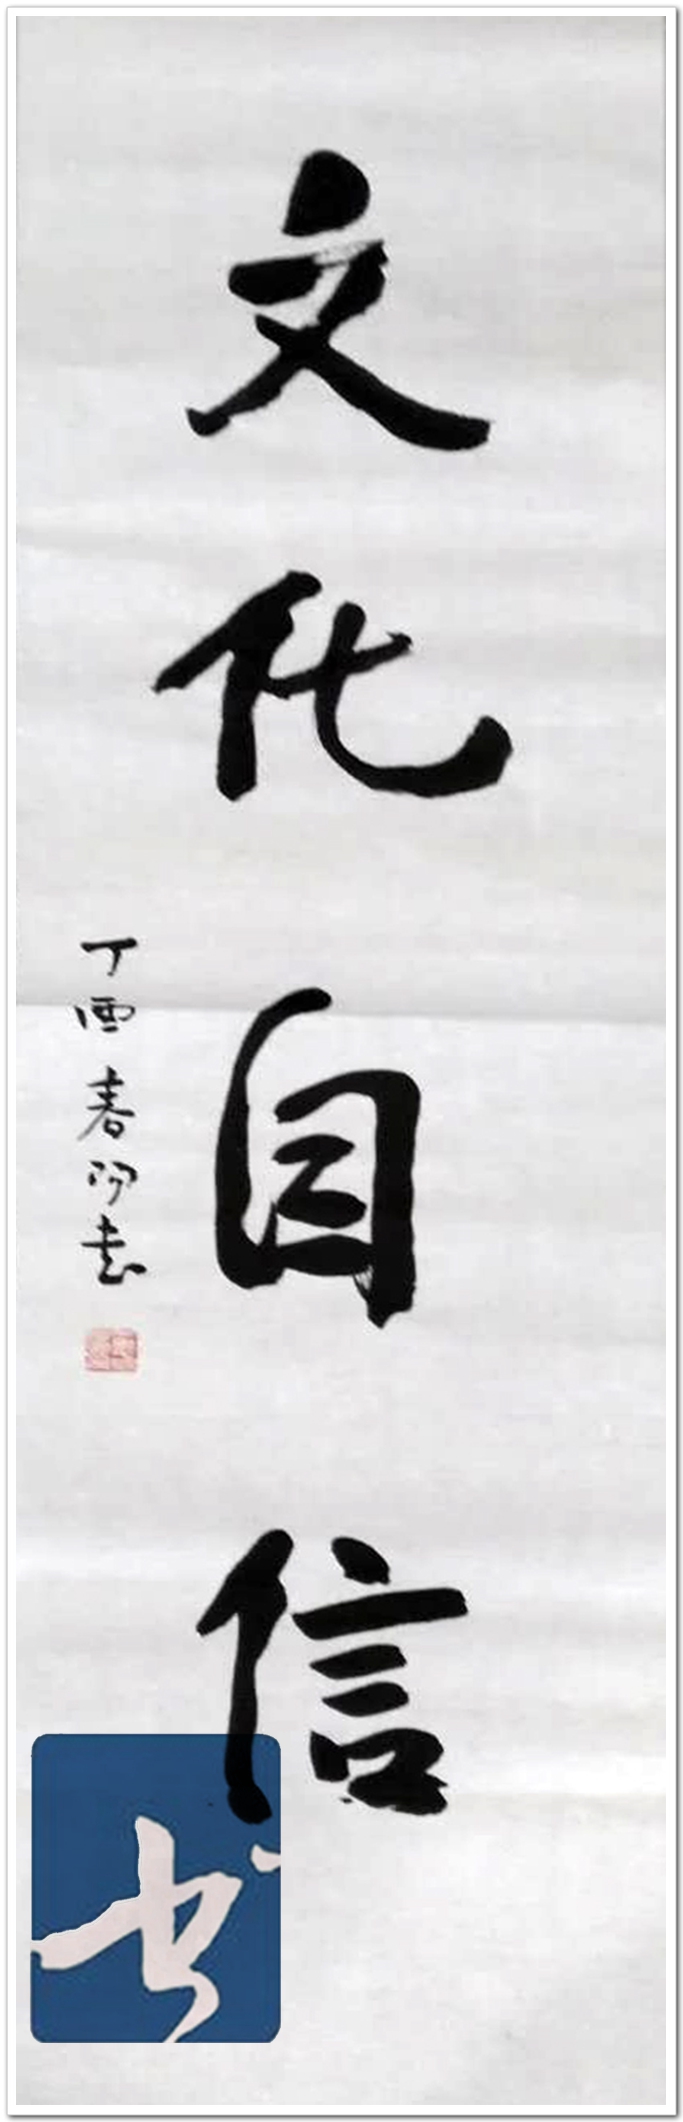 文化自信
丁酉春阳书
书